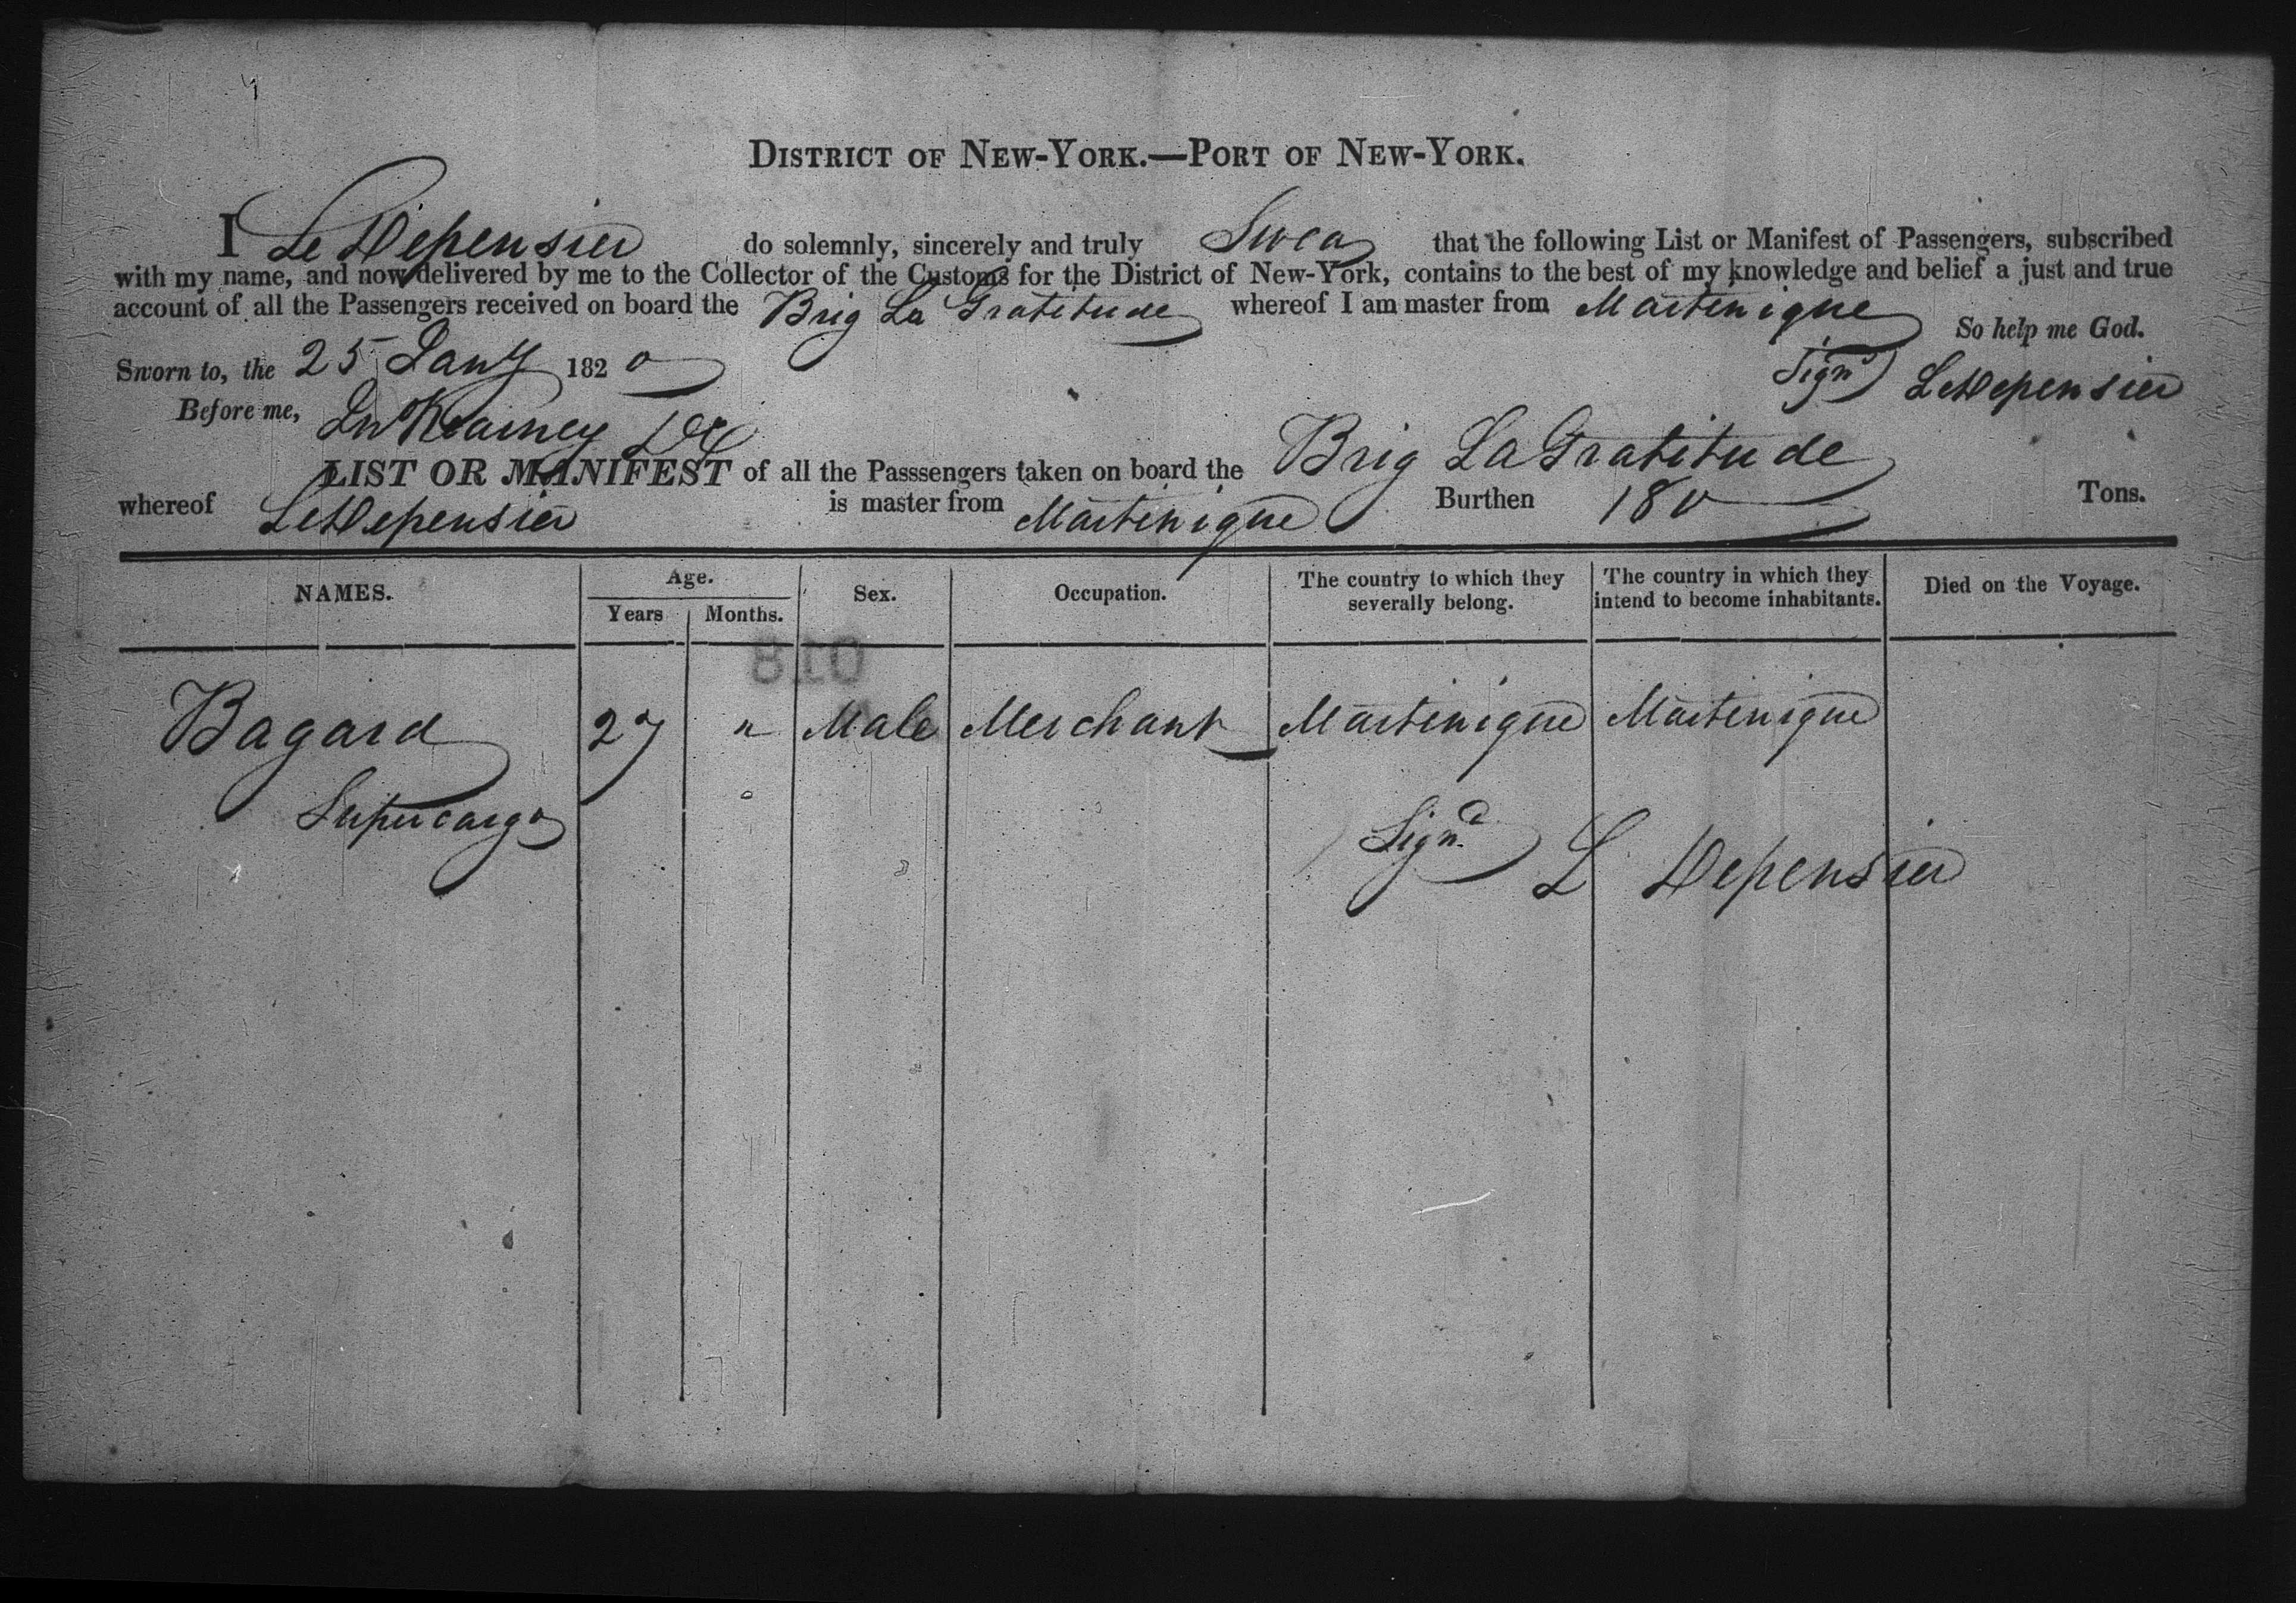 DISTRICT OF NEW-YORK.—PORT OF NEW-YORK.
I Le Depensier do solemnly, sincerely and truly Swea that the following List or Manifest of Passengers, subscribed
with my name, and now delivered by me to the Collector of the Customs for the District of New-York, contains to the best of my knowledge and belief a just and true
account of all the Passengers received on board the Brig La Gratitude whereof I am master from Martinique
So help me God.
Sworn to, the 25 Jany 1820
Signd Le Depensier
Before me, Kearney
LIST OR MANIFEST of all the Passsengers taken on board the Brig La Gratitude
whereof Le Depensier is master from Martinique Burthen 180 Tons.
NAMES. Age. Sex. Occupation. The country to which they severally belong. The country in which they intend to become inhabitants. Died on the Voyage.
Years Months.
810
Bagard 27 " Male Merchant Martinique Martinique
Supercargo
Signd L Depensier